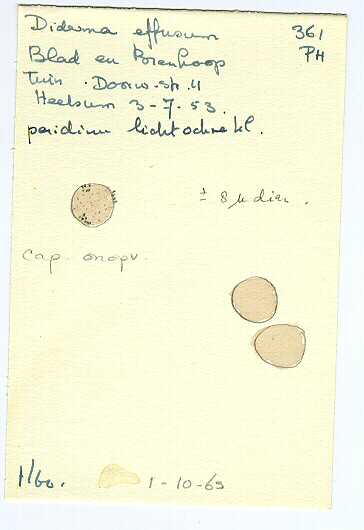 Diderma effusum 361
Blad en Boenhoop PH
Tuin . Doorw. str. 4
Heelsum 3-7-53.
peridium licht ochre kl.
± 8 µ diam.
cap. onopv.
1/60. 1-10-65